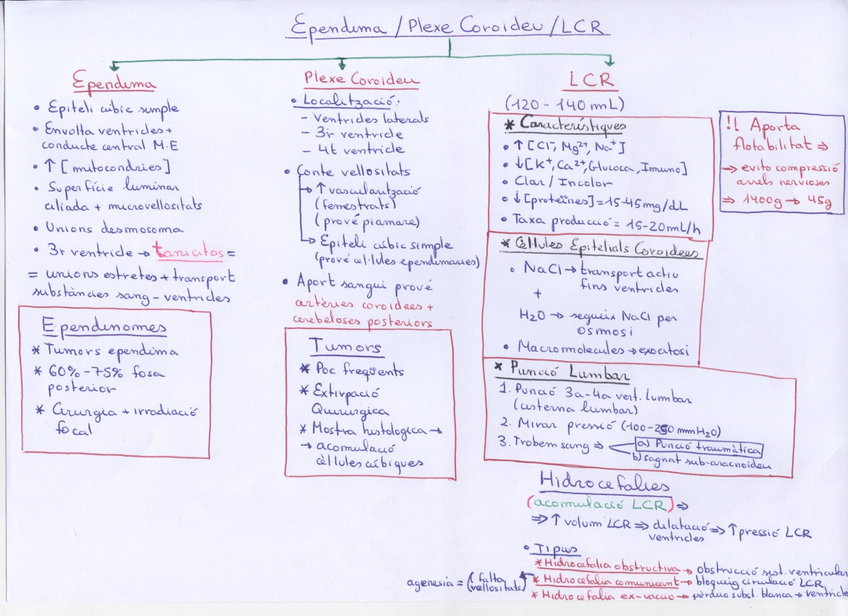 Ependima / Plexe Coroideu / LCR
Ependima
• Epiteli cúbic simple
• Envolta ventricles +
conducte central M.E
• ↑ [mitocondries]
• Superfície luminar
ciliada + microvellositats
• Unions desmosoma
• 3r ventricle → tanicitos =
= unions estretes + transport
substàncies sang - ventricles
Ependinomes
* Tumors ependima
* 60% - 75% fosa
posterior
* Cirurgia + irradiació
focal
Plexe Coroideu
• Localització:
- ventricles laterals
- 3r ventricle
- 4t ventricle
• Conte vellositats
→ ↑ vascularització
(fenestrats)
(prové piamare)
→ Epiteli cúbic simple
(prové cèl·lules ependimaries)
• Aport sangui prové
artèries coroidees +
cerebeloses posteriors
Tumors
* Poc freqüents
* Extirpació
Quirúrgica
* Mostra histologica →
→ acomulació
cèl·lules cúbiques
LCR
(120 - 140 mL)
* Característiques
• ↑ [Cl⁻, Mg²⁺, Na⁺]
• ↓ [K⁺, Ca²⁺, Glucosa, Imuno]
• Clar / Incolor
• ↓ [proteïnes] = 15-45 mg/dL
• Taxa producció = 15-20 mL/h
!! Aporta
flotabilitat ⇒
→ evito compressió
arrels nervioses
⇒ 1400g → 45g
* Cèl·lules Epitelials Coroidees
• NaCl → transport actiu
fins ventricles
+
H₂O → segueix NaCl per
osmosi
• Macromolecules → exocitosi
* Punció Lumbar
1. Punció 3a-4a vert. lumbar
(cisterna lumbar)
2. Mirar pressió (100-250 mmH₂O)
3. Trobem sang ⇒ a) Punció traumàtica
b) sagnat sub-aracnoideu
Hidrocefalies
(acomulació LCR) ⇒
⇒ ↑ volum LCR ⇒ dilatació ⇒ ↑ pressió LCR
ventricles
• Tipus
* Hidrocefalia obstructiva → obstrucció sist. ventricular
agenesia = (falta vellositats) * Hidrocefalia comunicant → bloqueig circulació LCR
* Hidrocefalia ex-vacuo → pèrdua subst. blanca → ventricle